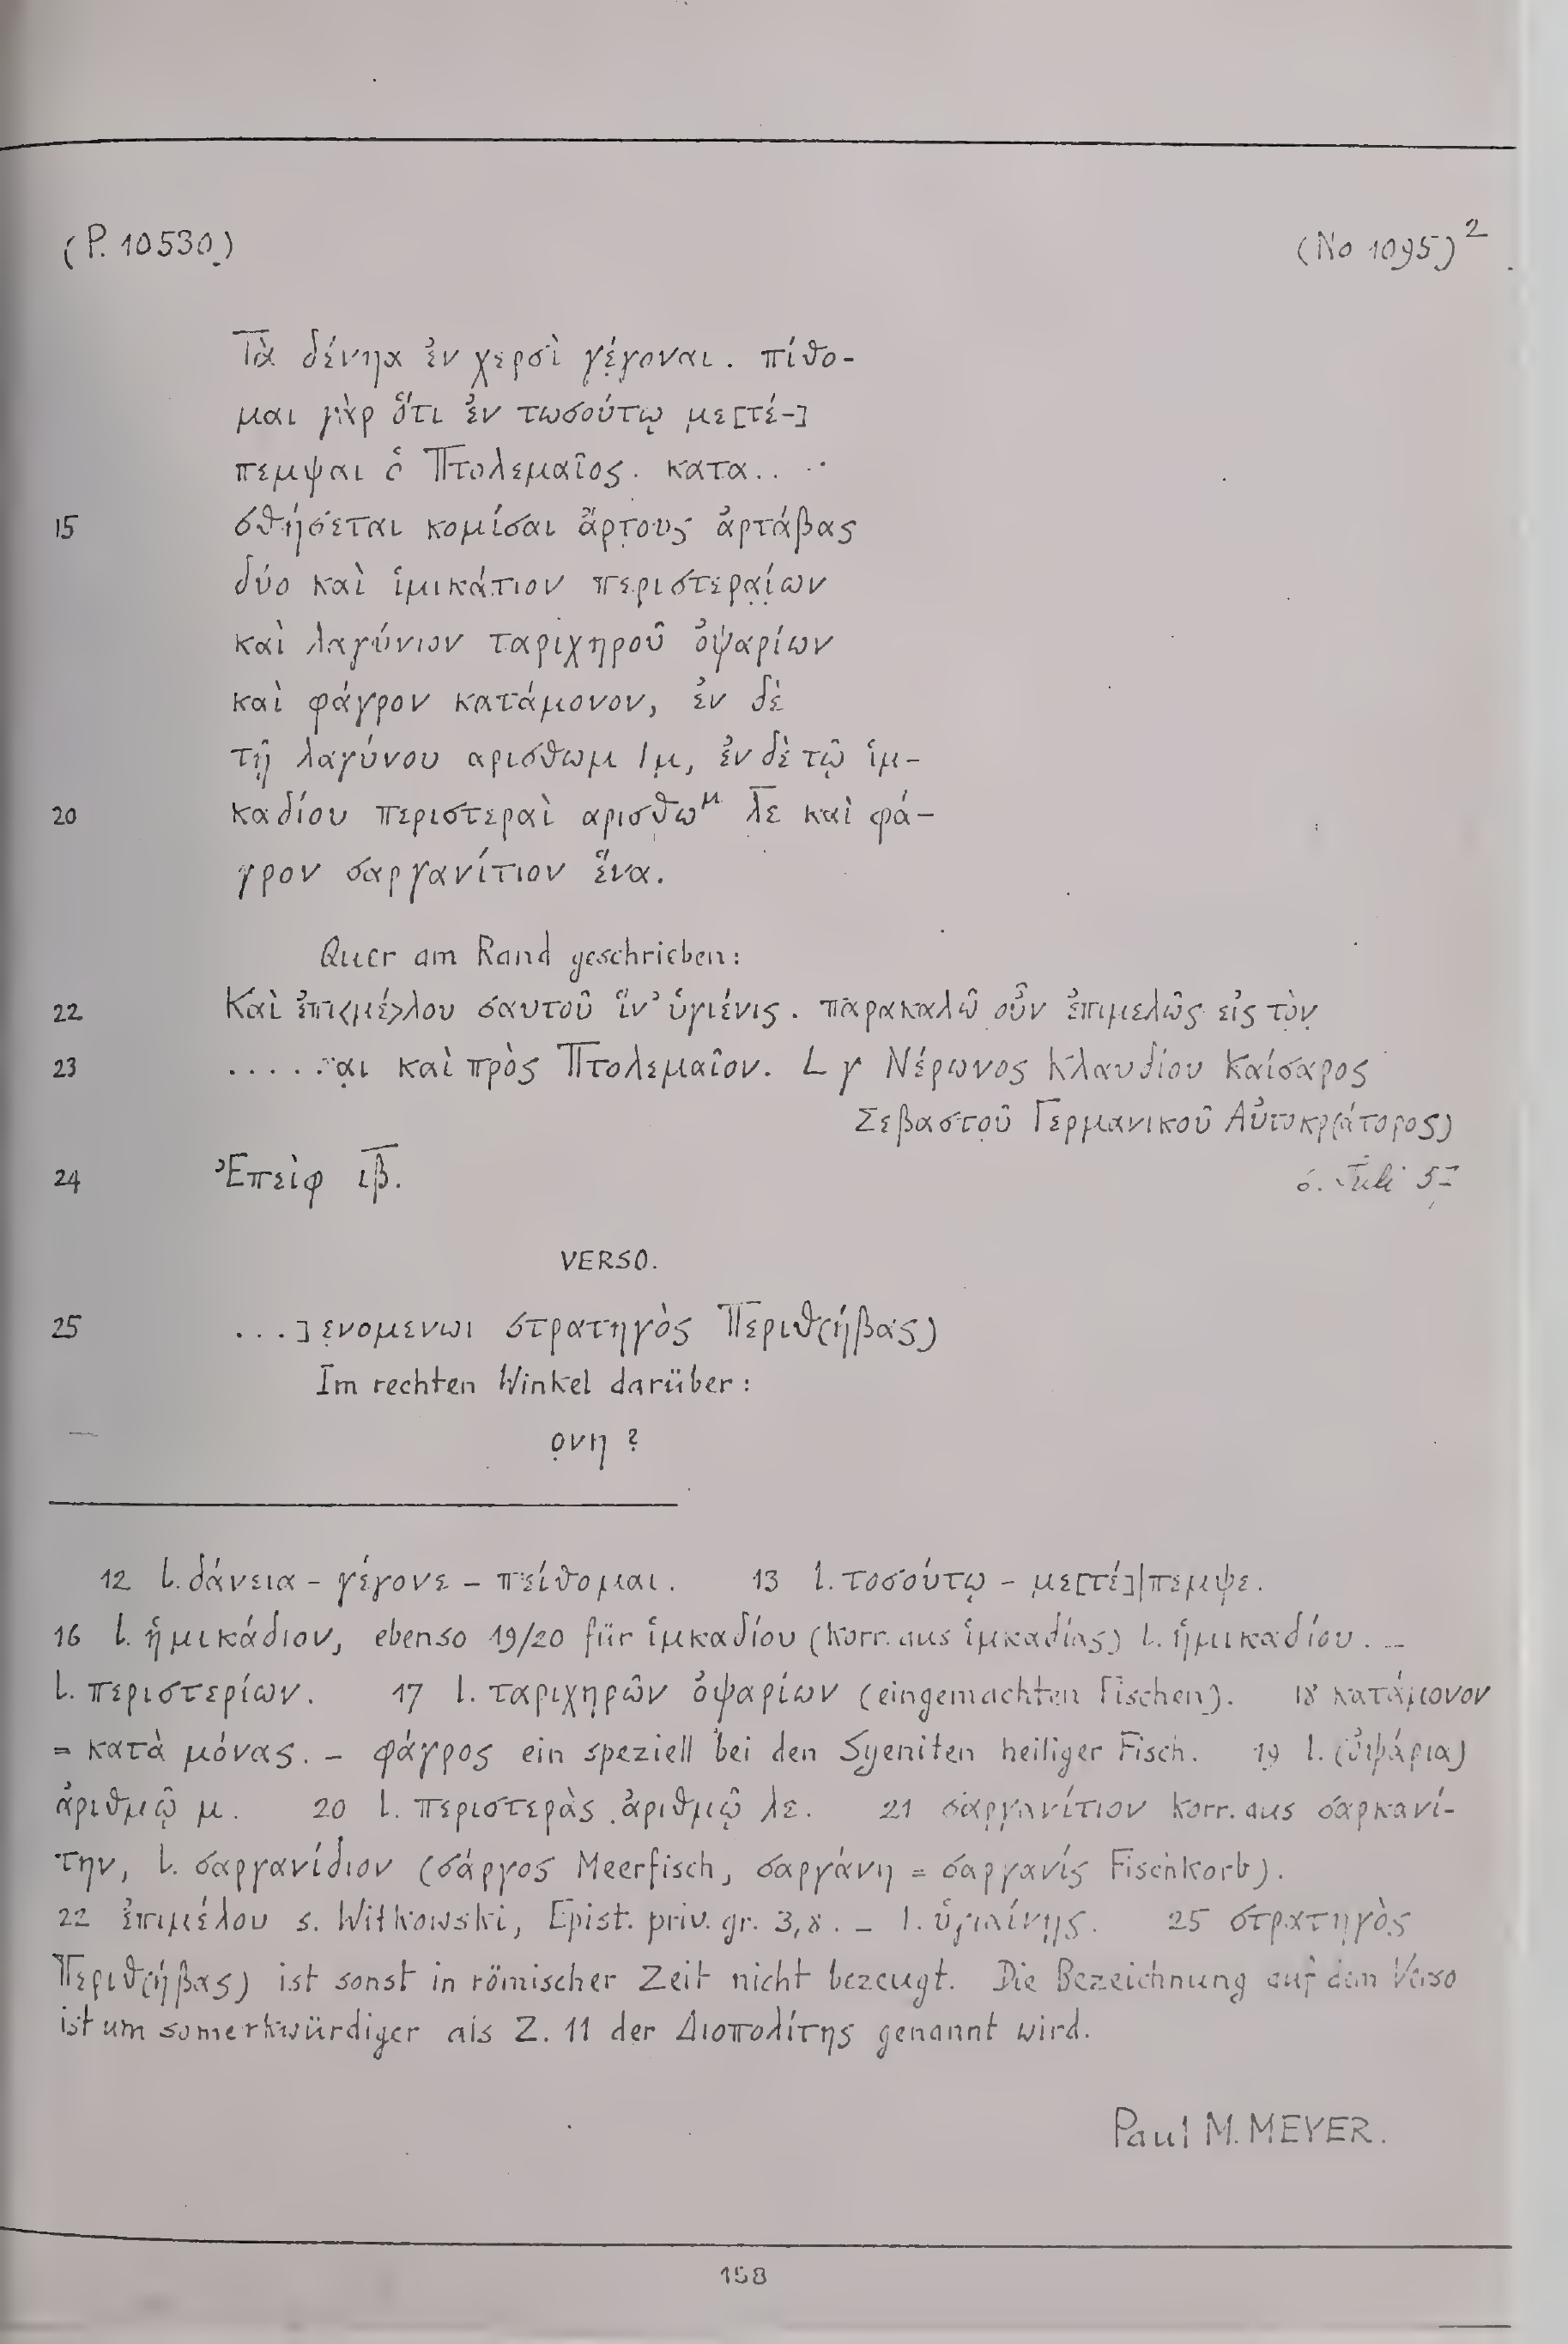 (P. 10530.)
(No 1095)²
Τὰ δένηα ἐν χερσὶ γέγοναι. πίθο-
μαι γὰρ ὅτι ἐν τωσούτῳ με[τέ-]
πεμψαι ὁ Πτολεμαῖος. κατα.. ..
15 σθήσεται κομίσαι ἄρτους ἀρτάβας
δύο καὶ ἱμικάτιον περιστεραίων
καὶ λαγύνιον ταριχηροῦ ὀψαρίων
καὶ φάγρον κατάμονον, ἐν δὲ
τῇ λαγύνου αρισθωμ /μ, ἐν δὲ τῷ ἱμ-
20 καδίου περιστεραὶ αρισθωᵘ λ̅ε καὶ φά-
γρον σαργανίτιον ἕνα.
Quer am Rand geschrieben:
22 Καὶ ἐπι<μέ>λου σαυτοῦ ἵν' ὑγιένις. παρακαλῶ οὖν ἐπιμελῶς εἰς τὸν
23 ......αι καὶ πρὸς Πτολεμαῖον. L γ Νέρωνος Κλαυδίου Καίσαρος
Σεβαστοῦ Γερμανικοῦ Αὐτοκρ(άτορος)
24 Ἐπεὶφ ι̅β̅.
6. Juli 57
VERSO.
25 ...]ενομενωι στρατηγὸς Περιθ(ήβας)
Im rechten Winkel darüber:
ονη ?
12 l. δάνεια - γέγονε - πείθομαι. 13 l. τοσούτῳ - με[τέ]|πεμψε.
16 l. ἡμικάδιον, ebenso 19/20 für ἱμκαδίου (korr. aus ἱμκαδίας) l. ἡμικαδίου. _
l. περιστερίων. 17 l. ταριχηρῶν ὀψαρίων (eingemachten Fischen). 18 κατάμονον
= κατὰ μόνας. - φάγρος ein speziell bei den Syeniten heiliger Fisch. 19 l. (ὀψάρια)
ἀριθμῷ μ. 20 l. περιστερὰς ἀριθμῷ λε. 21 σαργανίτιον korr. aus σαρκανί-
την, l. σαργανίδιον (σάργος Meerfisch, σαργάνη = σαργανίς Fischkorb).
22 ἐπιμέλου s. Witkowski, Epist. priv. gr. 3,8. _ l. ὑγιαίνῃς. 25 στρατηγὸς
Περιθ(ήβας) ist sonst in römischer Zeit nicht bezeugt. Die Bezeichnung auf dem Verso
ist um so merkwürdiger als Z. 11 der Διοπολίτης genannt wird.
Paul M. MEYER.
158